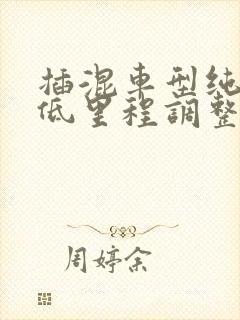 插混車型純
低里程調整
周婷余